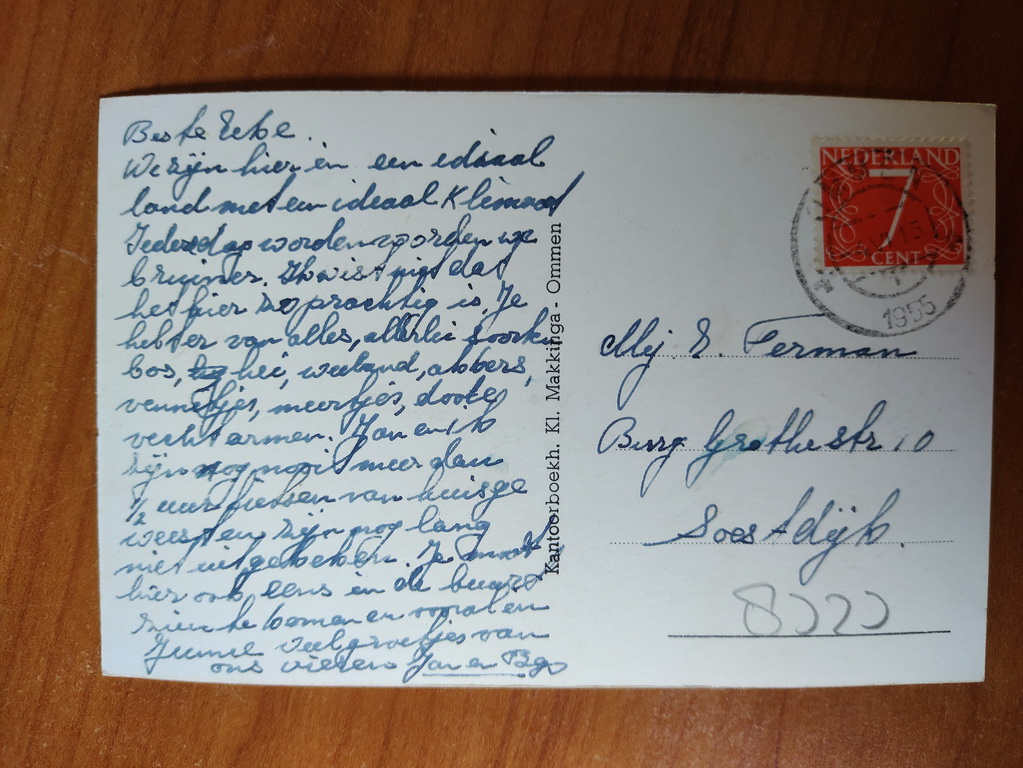 Beste Eefse.
We zijn hier in een ideaal
land met een ideaal Klimaat
Iedere dag worden worden we
bruiner. Ik wist niet dat
het hier zo prachtig is. Je
hebt er van alles, allerlei soorten
bos, hei, weiland, akkers,
vennetjes, meertjes, dode
vechtarmen. Jan en ik
zijn nog nooit meer dan
1/2 uur fietsen van huis ge
weest en zijn nog lang
niet uitgekeken. Je moet
hier ook eens in de buurt
zien te komen en vooral en
Jummie veel groetjes van
ons vieren Jan en
Kantoorboekh. Kl. Makkinga - Ommen
NEDERLAND
7
CENT
1955
Mej. E. Terman
Burg Grothestr 10
Soestdijk.